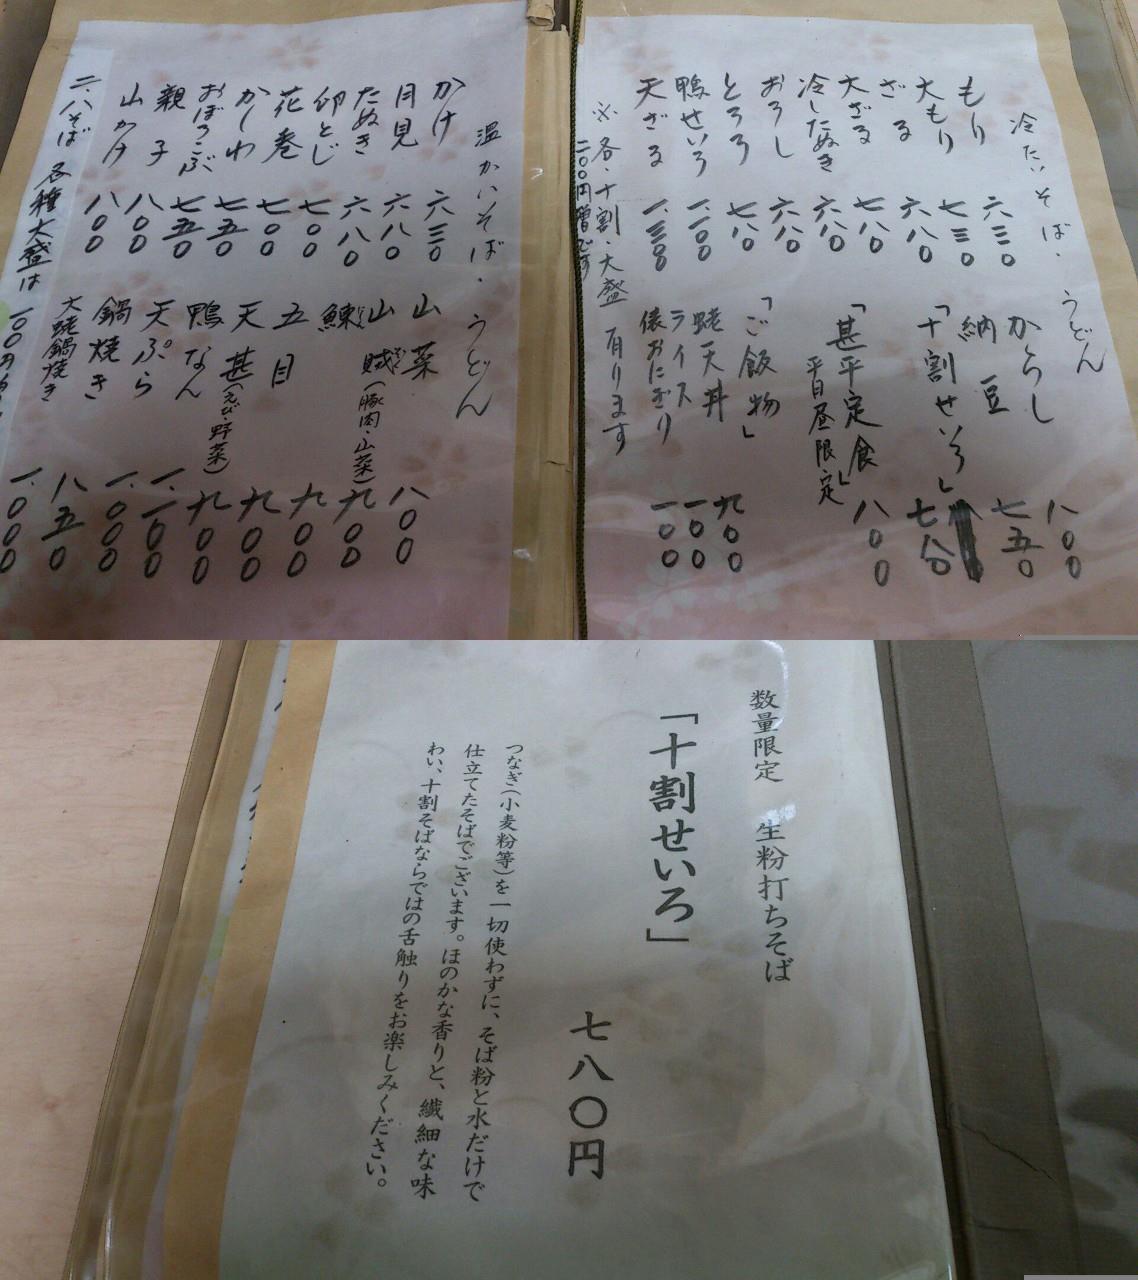 冷たいそば・うどん
もり 六三〇
大もり 七三〇
ざる 六八〇
大ざる 七八〇
冷したぬき 六八〇
おろし 六八〇
とろろ 七八〇
鴨せいろ 一、一〇〇
天ざる 一、三〇〇
八〇〇
納豆 七五〇
「十割せいろ」 七八〇
「甚平定食」 八〇〇
平日昼限定
「ご飯物」
蛯天丼 九〇〇
ライス 一〇〇
俵おにぎり 一〇〇
※各・十割・大盛 有ります
二〇〇円増です
温かいそば・うどん
かけ 六三〇
月見 六八〇
たぬき 六八〇
卵とじ 七〇〇
花巻 七〇〇
かしわ 七五〇
おぼろこぶ 七五〇
親子 八〇〇
山かけ 八〇〇
山菜 八〇〇
山賊(豚肉・山菜) 九〇〇
鰊 九〇〇
五目 九〇〇
天甚(えび・野菜) 九〇〇
鴨なん 一、一〇〇
天ぷら 一、〇〇〇
鍋焼き 八五〇
大蛯鍋焼き 一、〇〇〇
二・八そば 各種大盛は 一〇〇円
数量限定 生粉打ちそば
「十割せいろ」
七八〇円
つなぎ(小麦粉等)を一切使わずに、そば粉と水だけで
仕立てたそばでございます。ほのかな香りと、繊細な味
わい、十割そばならではの舌触りをお楽しみください。